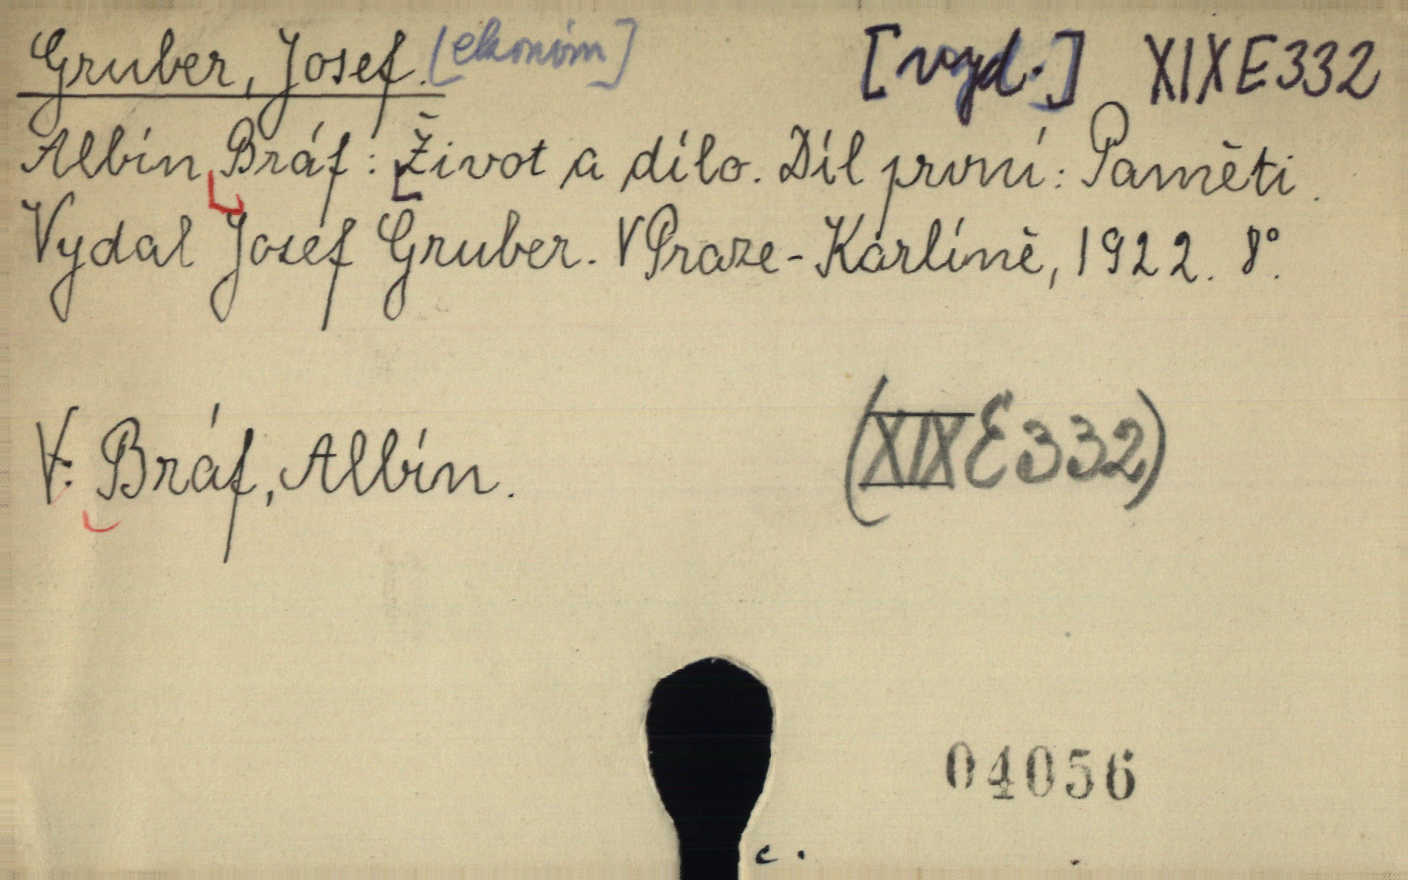 Gruber, Josef. [ekonom] [vyd.] XIXE332
Albín Bráf: Život a dílo. Díl první: Paměti.
Vydal Josef Gruber. V Praze-Karlíně, 1922. 8°.
V: Bráf, Albín.
(XIXE332)
04056
c.